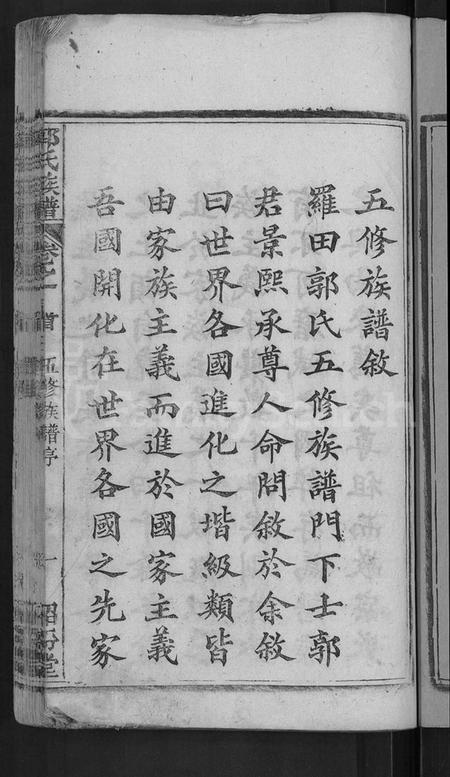 五修族譜敘
羅田郭氏五修族譜門下士郭
君景熙承尊人命問敘於余敘
曰世界各國進化之堦級類皆
由家族主義而進於國家主義
吾國開化在世界各國之先家
郭氏族譜
卷之一
首
五修族譜序
一
堂